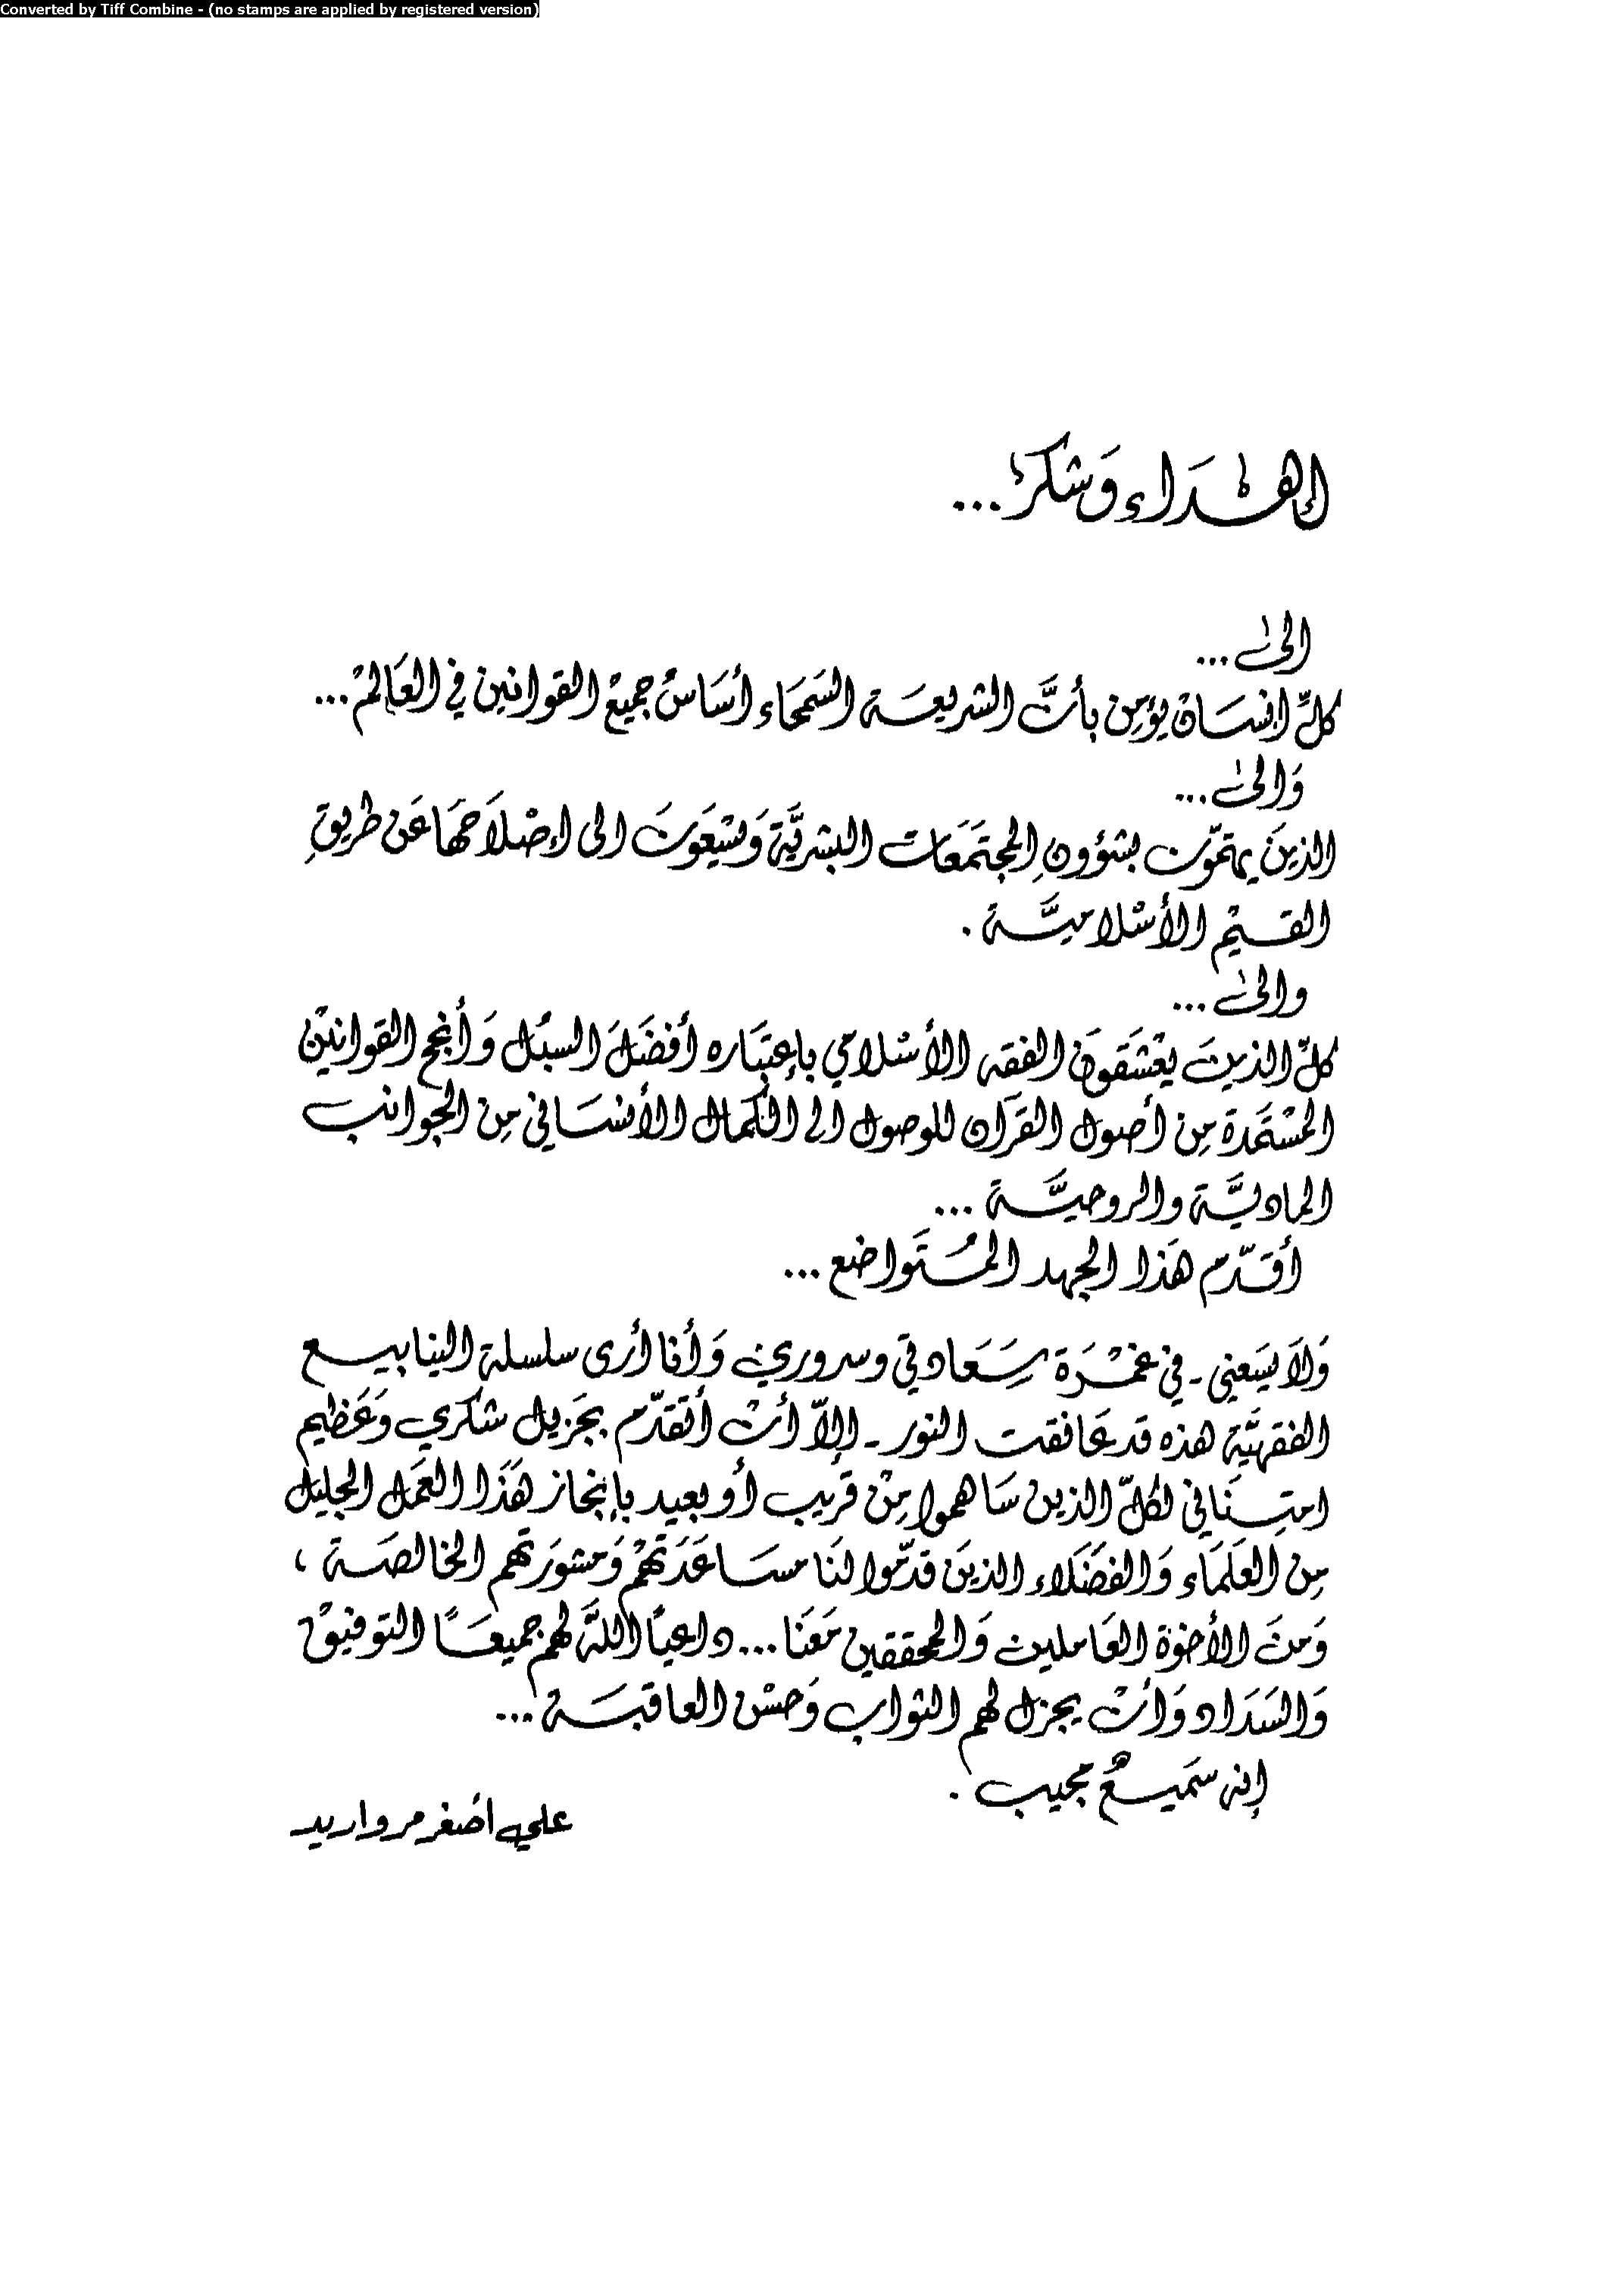 Converted by Tiff Combine - (no stamps are applied by registered version)
إهداء وشكر ...
الى ...
كلّ انسان يؤمن بأنَّ الشريعة السَمحَاء أسَاسُ جميع القوانين في العَالمْ ...
وَالى ...
الذينَ يهتمّون بشؤونِ المجتَمَعَات البشريَّة وَيسْعَونَ الى إصْلاَحهَا عَن طريقِ
القيمْ الأسْلاميَّة .
والى ...
كلّ الذينَ يعْشَقونَ الفقه الأسْلاميّ بإعتبَاره أفضَلَ السبُل وَأنجح القوانيْن
المسْتمَدة مِن أصول القرآن للوصول الى الكمال الأنسَاني مِن الجوانب
الماديَّة والروحيَّة ...
أقدّم هَذا الجهد المُتَواضع ...
وَلاَ يسَعني - في غمْرَة سَعَادتي وسروري وَأنا أرى سلسلة الينابيع
الفقهيَّة هذه قد عَانقت النور - إلاّ أنْ أتقدّم بجَزيل شكري وَعَظيم
امتِنَاني لكلّ الذين سَاهموا مِنْ قريب أو بعيد بإنجاز هَذَا العَمل الجليل
مِن العلمَاء وَالفضَلاء الذينَ قدّموا لنَا مسَاعَدَتهمْ وَمشورَتهم الخالصَة ،
وَمنَ الأخوْة العَاملين وَالمحققين مَعَنَا ... داعيًا اللهَ لهم جميعًا التوفيقْ
وَالسَدَاد وَأنْ يجزل لهم الثواب وَحسْن العاقبَة ...
إنه سَميعٌ مجيب .
علي اصْغر مرواريد